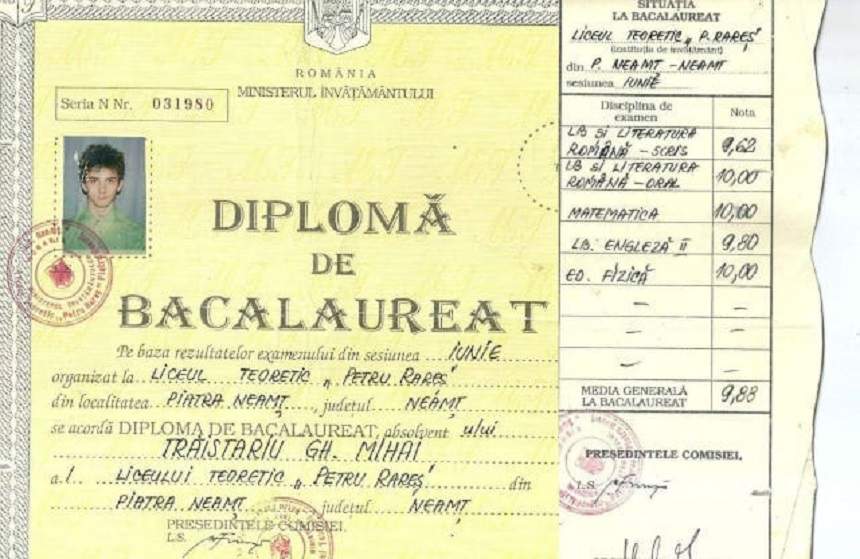 ROMÂNIA
MINISTERUL ÎNVĂŢĂMÂNTULUI
Seria N Nr. 031980
DIPLOMĂ
DE
BACALAUREAT
Pe baza rezultatelor examenului din sesiunea IUNIE
organizat la LICEUL TEORETIC „PETRU RAREŞ"
din localitatea PIATRA NEAMŢ, judeţul NEAMŢ
se acordă DIPLOMA DE BACALAUREAT, absolvent ului
TRĂISTARIU GH. MIHAI
a.l. LICEULUI TEORETIC „PETRU RAREŞ" din
PIATRA NEAMŢ judeţul NEAMŢ
PREŞEDINTELE COMISIEI,
L.S.
SITUAŢIA
LA BACALAUREAT
LICEUL TEORETIC „P. RAREŞ"
(instituţia de învăţământ)
din P. NEAMŢ - NEAMŢ
sesiunea IUNIE
Disciplina de examen Nota
LB ŞI LITERATURA
ROMÂNĂ - SCRIS 9,62
LB ŞI LITERATURA
ROMÂNĂ - ORAL 10,00
MATEMATICA 10,00
LB. ENGLEZĂ II 9,80
ED. FIZICĂ 10,00
MEDIA GENERALĂ
LA BACALAUREAT 9,88
PREŞEDINTELE COMISIEI,
L.S.